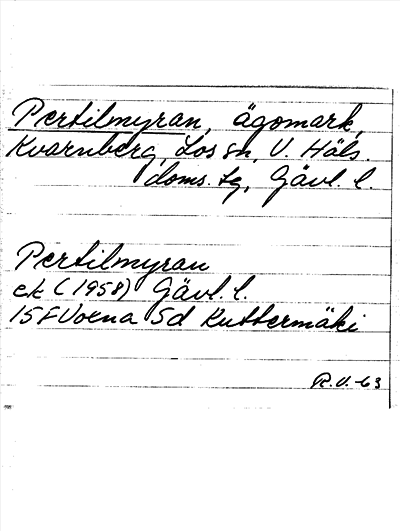 Pertilmyran, ägomark,
Kvarnberg, Los sn, V. Häls.
doms. tg, Gävl. l.
Pertilmyran
ek (1958) Gävl. l.
15F Voxna 5d Kuttermäki
R.V.-63